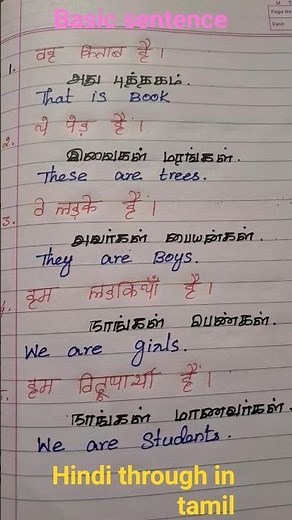 Basic sentence
Page No
Date
1. वह किताब है।
அது புத்தகம்.
That is Book
2. ये पेड़ हैं।
இவைகள் மரங்கள்.
These are trees.
3. वे लड़के हैं।
அவர்கள் பையன்கள்.
They are Boys.
4. हम लडकियाँ हैं।
நாங்கள் பெண்கள்.
We are girls.
5. हम विद्यार्थी हैं।
நாங்கள் மாணவர்கள்.
We are Students.
Hindi through in
tamil